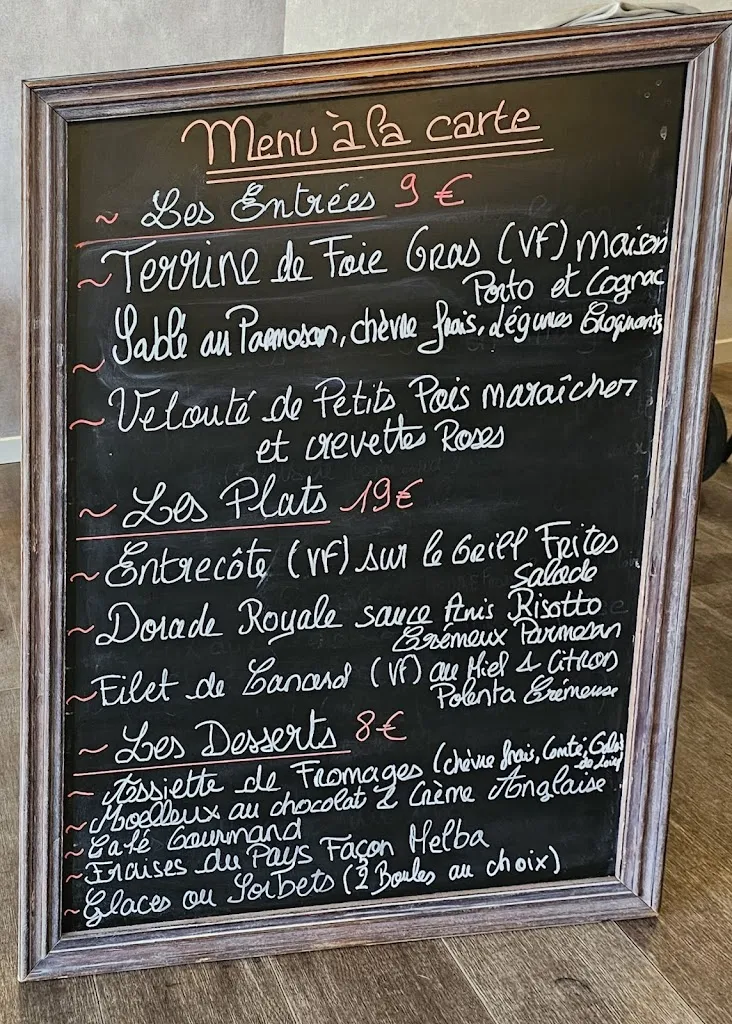 Menu à la carte
~ Les Entrées 9 €
~ Terrine de Foie Gras (VF) maison
Porto et Cognac
~ Sablé au Parmesan, chèvre frais, légumes croquants
~ Velouté de Petits Pois maraîcher
et crevettes Roses
~ Les Plats 19 €
~ Entrecôte (VF) sur le Grill Frites
Salade
~ Dorade Royale sauce Anis Risotto
Crémeux Parmesan
~ Filet de Canard (VF) au Miel & Citron
Polenta Crémeuse
~ Les Desserts 8 €
~ Assiette de Fromages (chèvre frais, Comté,
~ Moelleux au chocolat & Crème Anglaise
~ Café Gourmand
~ Fraises du Pays Façon Melba
~ Glaces ou Sorbets (2 Boules au choix)